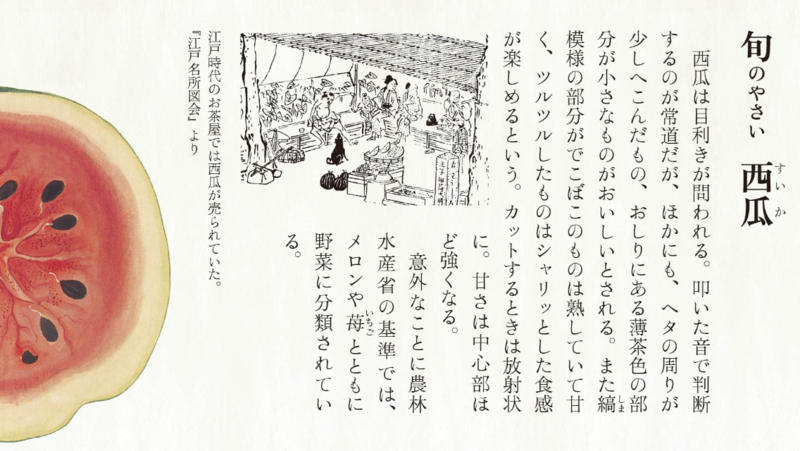 旬のやさい 西瓜
すいか
西瓜は目利きが問われる。叩いた音で判断
するのが常道だが、ほかにも、ヘタの周りが
少しへこんだもの、おしりにある薄茶色の部
分が小さなものがおいしいとされる。また縞
しま
模様の部分がでこぼこのものは熟していて甘
く、ツルツルしたものはシャリッとした食感
が楽しめるという。カットするときは放射状
に。甘さは中心部ほ
ど強くなる。
意外なことに農林
水産省の基準では、
メロンや苺とともに
いちご
野菜に分類されてい
る。
江戸時代のお茶屋では西瓜が売られていた。
『江戸名所図会』より